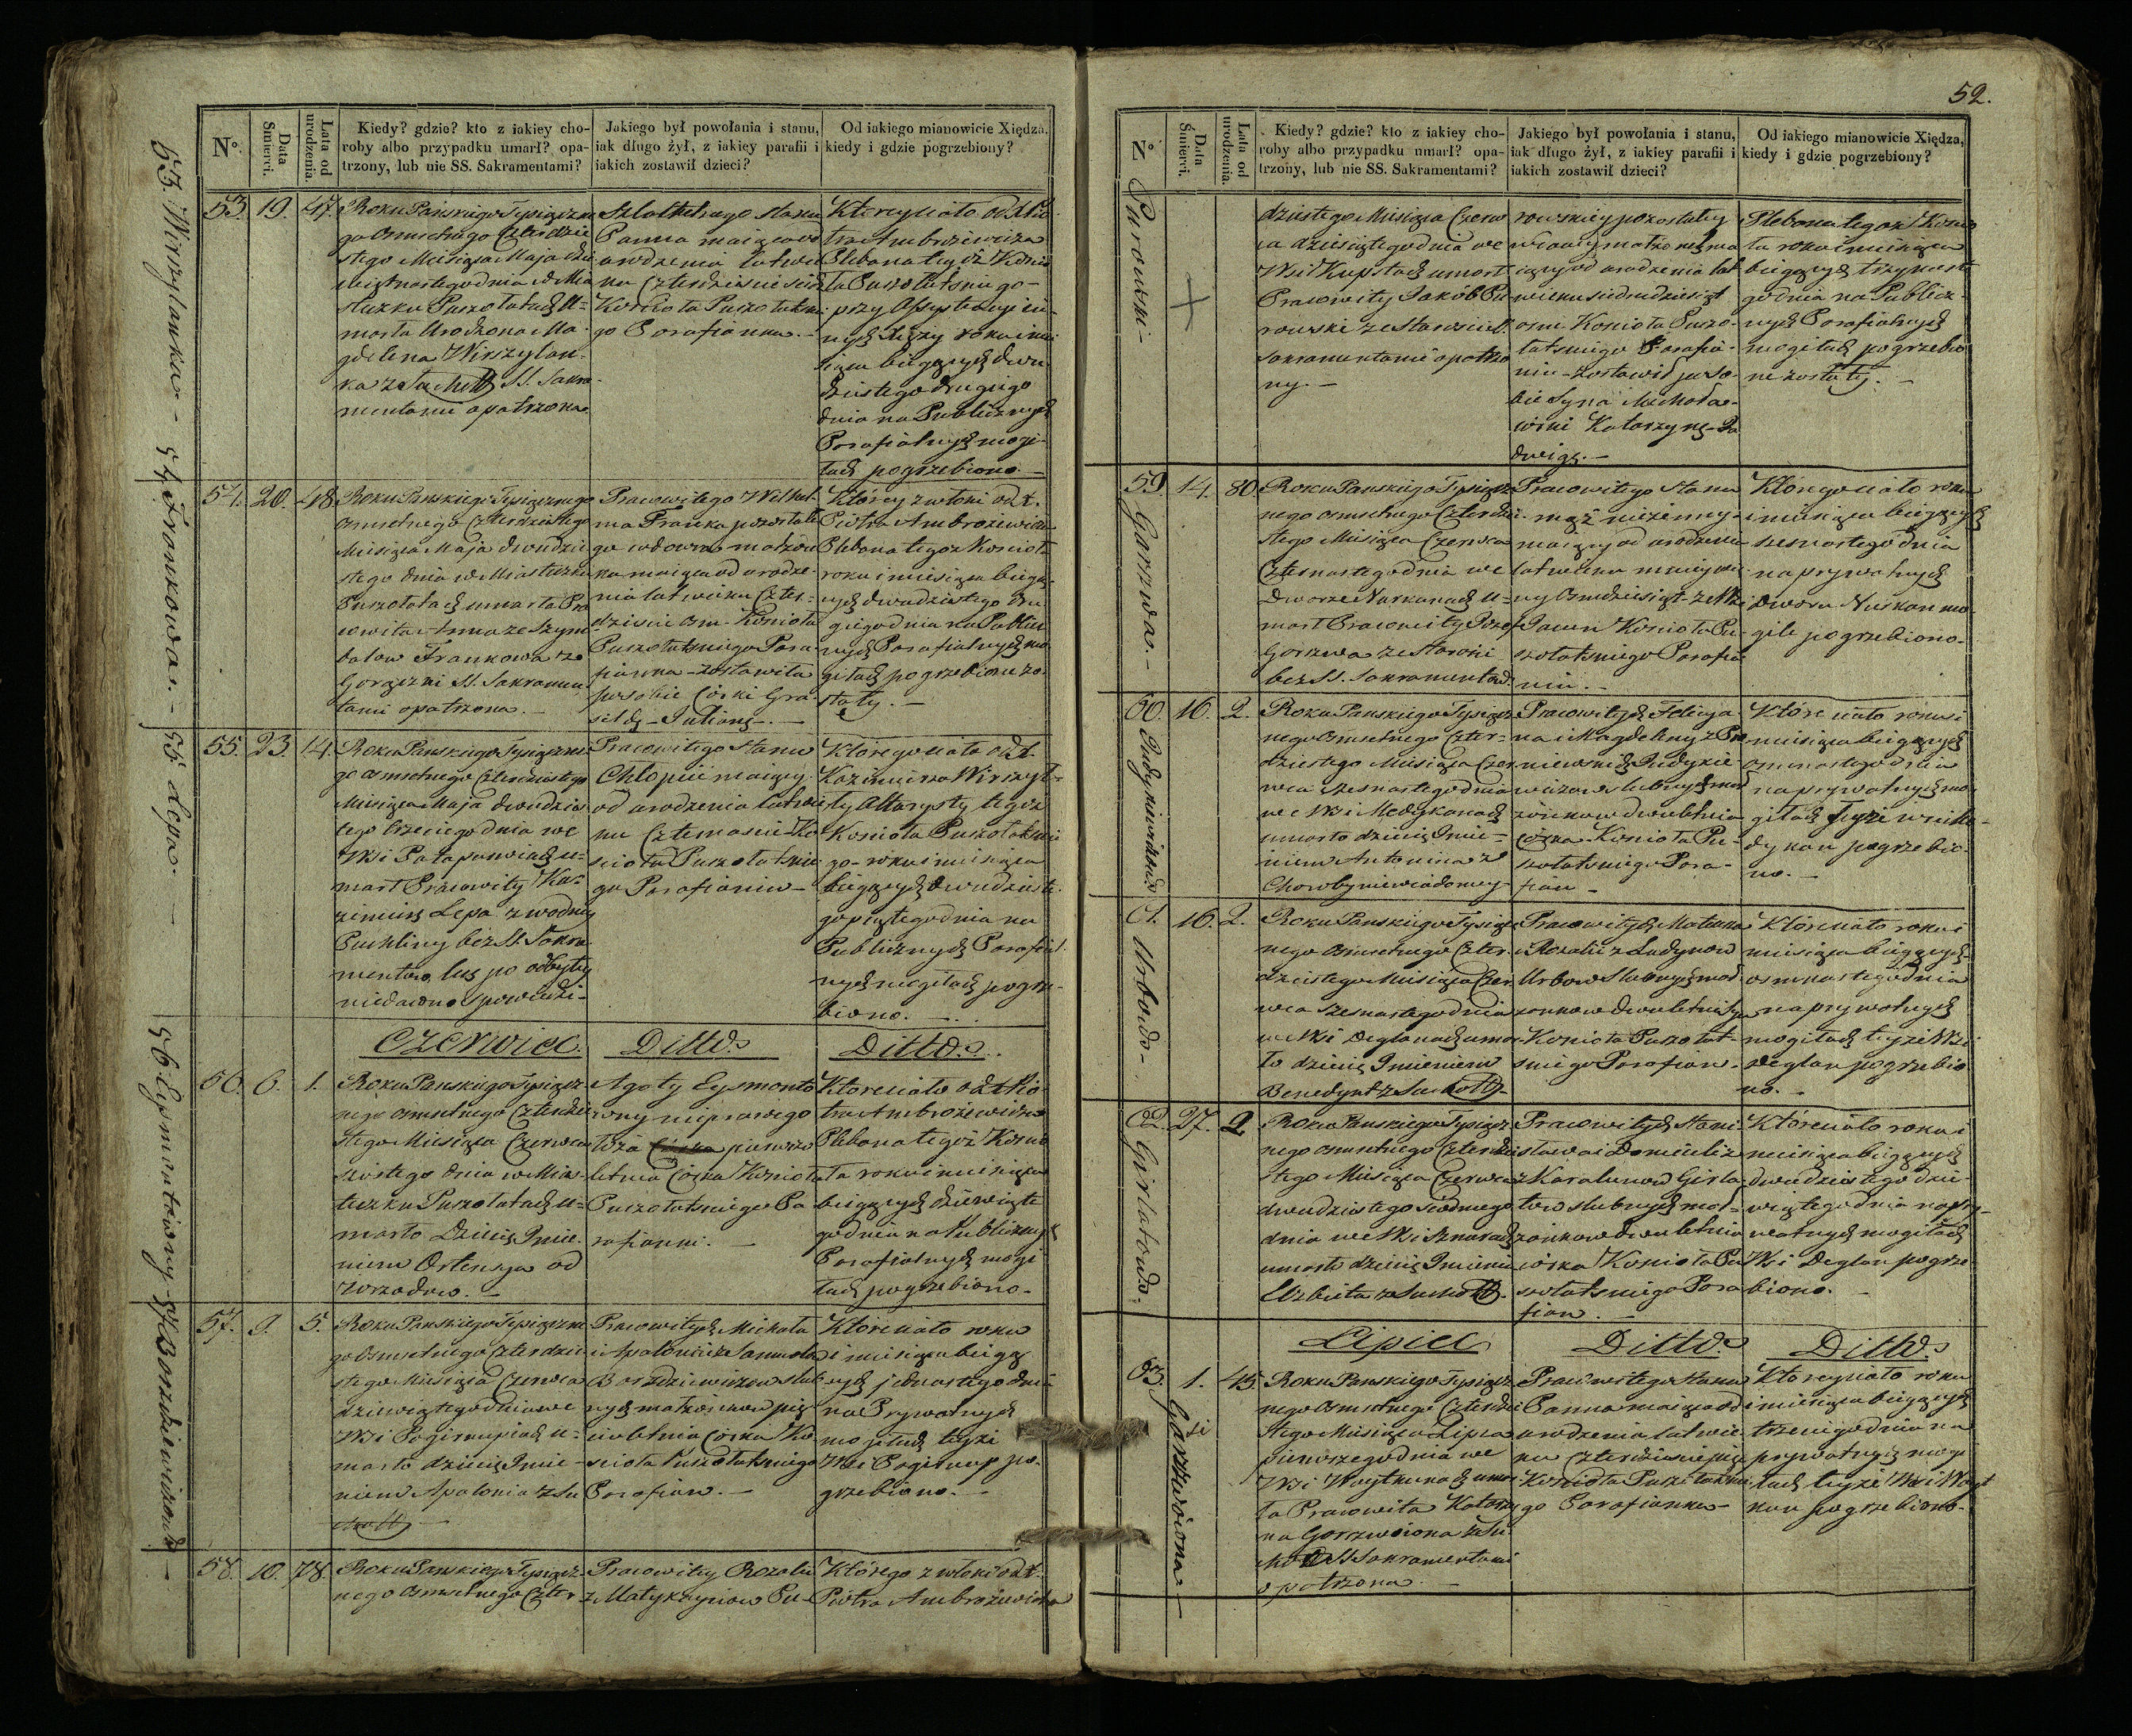 N°.
Data Śmierci.
Lata od urodzenia.
Kiedy? gdzie? kto z iakiey cho-
roby albo przypadku umarł? opa-
trzony, lub nie SS. Sakramentami?
Jakiego był powołania i stanu,
iak długo żył, z iakiey parafii i
iakich zostawił dzieci?
Od iakiego mianowicie Xiędza,
kiedy i gdzie pogrzebiony?
53. Wirszylanka
53. 19. 47.
Roku Pańskiego Tysiączne
go Osmsetnego Czterdzie
stego Miesiąca Maja
dnia w Mia
steczku Puszołatach u=
marła Urodzona Ma-
gdalena Wirszylan-
ka z Suchott SS. Sakra-
mentami opatrzona
Szlachetnego stanu
Panna maiąca od
urodzenia lat wie
ku Czterdzieście siedm
Kościoła Puszołatskie
go Parafianka.-
Ktorey ciało od X. Pio
tra Ambrożewicza
Plebana tegoż Kościo
ła Puszołatskiego-
przy
nych Xięży roku i mie
siąca bieżących dwu
dziestego drugiego
dnia na Publicznych
Parafialnych mogi-
łach pogrzebiono.-
54 Frankowa.-
54. 20. 48
Roku Pańskiego Tysiącznego
Osmsetnego Czterdziestego
Miesiąca Maja dwudzie
stego dnia w Miasteczku
Puszołatach umarła Pra
cowita Anna ze Szym
bałow Frankowa ze
Gorączki SS. Sakramen
tami opatrzona.-
Pracowitego Wilhel-
ma Franka pozostałe
go wdowca małżon
ka maiąca od urodze-
nia lat wieku Czter-
dzieście Osm-Kościoła
Puszołatskiego Para
fianka-zostawiła
po sobie Córki Gra-
sildę-Julianę.-
Którey zwłoki od X.
Piotra Ambrożewicza
Plebana tegoż Kościoła
roku i miesiąca bieżą-
cych dwudziestego dru
giego dnia na Public
nych Parafialnych mo
giłach pogrzebione zo-
stały.-
55 Lepa.
55. 23. 14.
Roku Pańskiego Tysiączne
go Osmsetnego Czterdziestego
Miesiąca Maja dwudzies
tego trzeciego dnia we
Wsi u=
marł Pracowity Ka-
zimierz Lepa z wodney
Puchliny bez SS. Sakra
mentów lecz po odbytey
niedawno spowiedzi-
Pracowitego stanu
Chłopiec maiący
od urodzenia lat wie
ku Czternaście-Ko-
ścioła Puszołatskie
go Parafianin-
Którego ciało od X.
Kazimierza Wirszył-
ły Altarysty tegoż
Kościoła Puszołatskie
go-roku i miesiąca
bieżących dwudzieste
go piątego dnia na
Publicznych Parafial
nych mogiłach pogrze-
biono.-
Czerwiec. Ditto. Ditto.
56 Eysmontówny
56. 6. 1.
Roku Pańskiego Tysiącz
nego Osmsetnego Czterdzie
stego Miesiąca Czerwca
szóstego dnia w Mias-
teczku Puszołatach u=
marło Dziecię Imie-
niem Ortensya od
Wrzodów.-
Agaty Eysmonto
wny nieprawego
łoża pierwszo
letnia Córka Kościoła
Puszołatskiego Pa
rafianki.-
Ktore ciało od X. Pio-
tra Ambrożewicza
Plebana tegoż Kościo
ła roku i miesiąca
bieżących dziewiąte
go dnia na Publicznych
Parafialnych mogi
łach pogrzebiono.
57
57. 9. 5.
Roku Pańskiego Tysiączne
go Osmsetnego Czterdzie
stego Miesiąca Czerwca
dziewiątego dnia we
Wsi u=
marło dziecię Imie-
niem Apolonia z Su
chott
Pracowitych Michała
i Apolonii
ślub
nych małżonków pię
cioletnia Córka Ko-
ścioła Puszołatskiego
Parafian.-
Które ciało roku
i miesiąca bieżą
cych jedenastego dnia
na Prywatnych
mogiłach teyże
Wsi po-
grzebiono.-
58. 10. 78
Roku Pańskiego Tysiącz
nego Osmsetnego Czter
Pracowitey Rozalii
z Pu-
Którego zwłoki od X.
Piotra Ambrożewicza
52.
N°.
Data Śmierci.
Lata od urodzenia.
Kiedy? gdzie? kto z iakiey cho-
roby albo przypadku umarł? opa-
trzony, lub nie SS. Sakramentami?
Jakiego był powołania i stanu,
iak długo żył, z iakiey parafii i
iakich zostawił dzieci?
Od iakiego mianowicie Xiędza,
kiedy i gdzie pogrzebiony?
Purowski-
dziestego Miesiąca Czerw
ca dziesiątego dnia we
Wsi Kupstach umarł
Pracowity Jakób Pu
rowski ze Starości SS.
Sakramentami opatrzo
ny.-
rowskiey pozostałey
wdowy małżonek ma
iący od urodzenia lat
wieku siedmdziesiąt
osm-Kościoła Puszo-
łatskiego Parafia-
nin-zostawił po so-
bie Syna
Katarzynę-Ja
dwigę.-
Plebana tegoż Kościo
ła roku i miesiąca
bieżących trzynaste
go dnia na Publicz-
nych Parafialnych
mogiłach pogrzebio
ne zostały.-
Garszwa.-
59. 14. 80
Roku Pańskiego Tysiącz
nego Osmsetnego Czterdzie
stego Miesiąca Czerwca
Czternastego dnia we
Dworze Narkanach u=
marł Pracowity Józef
Garszwa ze Starości
bez SS. Sakramentów.
Pracowitego stanu
mąż nieżenny-
maiący od urodzenia
lat wieku
Osmdziesiąt-
Kościoła Pu-
szołatskiego Parafia
nin.-
Którego ciało roku
i miesiąca bieżących
szesnastego dnia
na prywatnych
dworu Narkan mo-
gile pogrzebiono-
60. 16. 2.
Roku Pańskiego Tysiącz
nego Osmsetnego Czter-
dziestego Miesiąca Czer
wca szesnastego dnia
we Wsi Medykanach
umarło dziecię Imie-
niem Antonina z
Choroby niewiadomey
Pracowitych Felicya
na i Magdaleny
ślubnych mał
żonków dwuletnia
Córka-Kościoła Pu-
szołatskiego Para-
fian-
Które ciało roku i
miesiąca bieżących
Osmnastego dnia
na prywatnych mo-
giłach teyże wsi Me-
dykan pogrzebio-
no.-
Urbowo-
61. 16. 2.
Roku Pańskiego Tysiącz
nego Osmsetnego Czter-
dziestego Miesiąca Czer
wca szesnastego dnia
we Wsi Deglanach umar
ło dziecię Imieniem
Benedykt z Suchott-
Pracowitych Mateusza
i Rozalii z Ladynow
Urbow ślubnych mał
żonków dwuletni Syn
Kościoła Puszołat-
skiego Parafian.
Które ciało roku i
miesiąca bieżących
osmnastego dnia
na prywatnych
mogiłach teyże Wsi
Deglan pogrzebio
no.-
Girłatowo.
62. 27. 2
Roku Pańskiego Tysiącz
nego Osmsetnego Czterdzie
stego Miesiąca Czerwca
dwudziestego siódmego
dnia we Wsi
umarło dziecię Imieniem
Elżbieta z Suchott.
Pracowitych Stani
sława i Domicelli z
Karalunow Girła-
tow ślubnych mał-
żonków dwuletnia
córka Kościoła Pu
szołatskiego Para
fian.-
Które ciało roku i
miesiąca bieżących
dwudziestego dzie-
wiątego dnia na pry-
watnych mogiłach
Wsi Deglan pogrze
biono.-
Lipiec Ditto. Ditto.
63. 1. 45.
Roku Pańskiego Tysiącz
nego Osmsetnego Czterdzie
stego Miesiąca Lipca
pierwszego dnia we
Wsi umar
ła Pracowita Katarzy
na Garszwiona z Su
chott SS Sakramentami
opatrzona.-
Pracowitego stanu
Panna maiąca od
urodzenia lat wie-
ku Czterdzieście pięć
Kościoła Puszołatskie
go Parafianka-
Ktorey ciało roku
i miesiąca bieżących
trzeciego dnia na
prywatnych mogi
łach teyże Wsi
kan pogrzebiono-